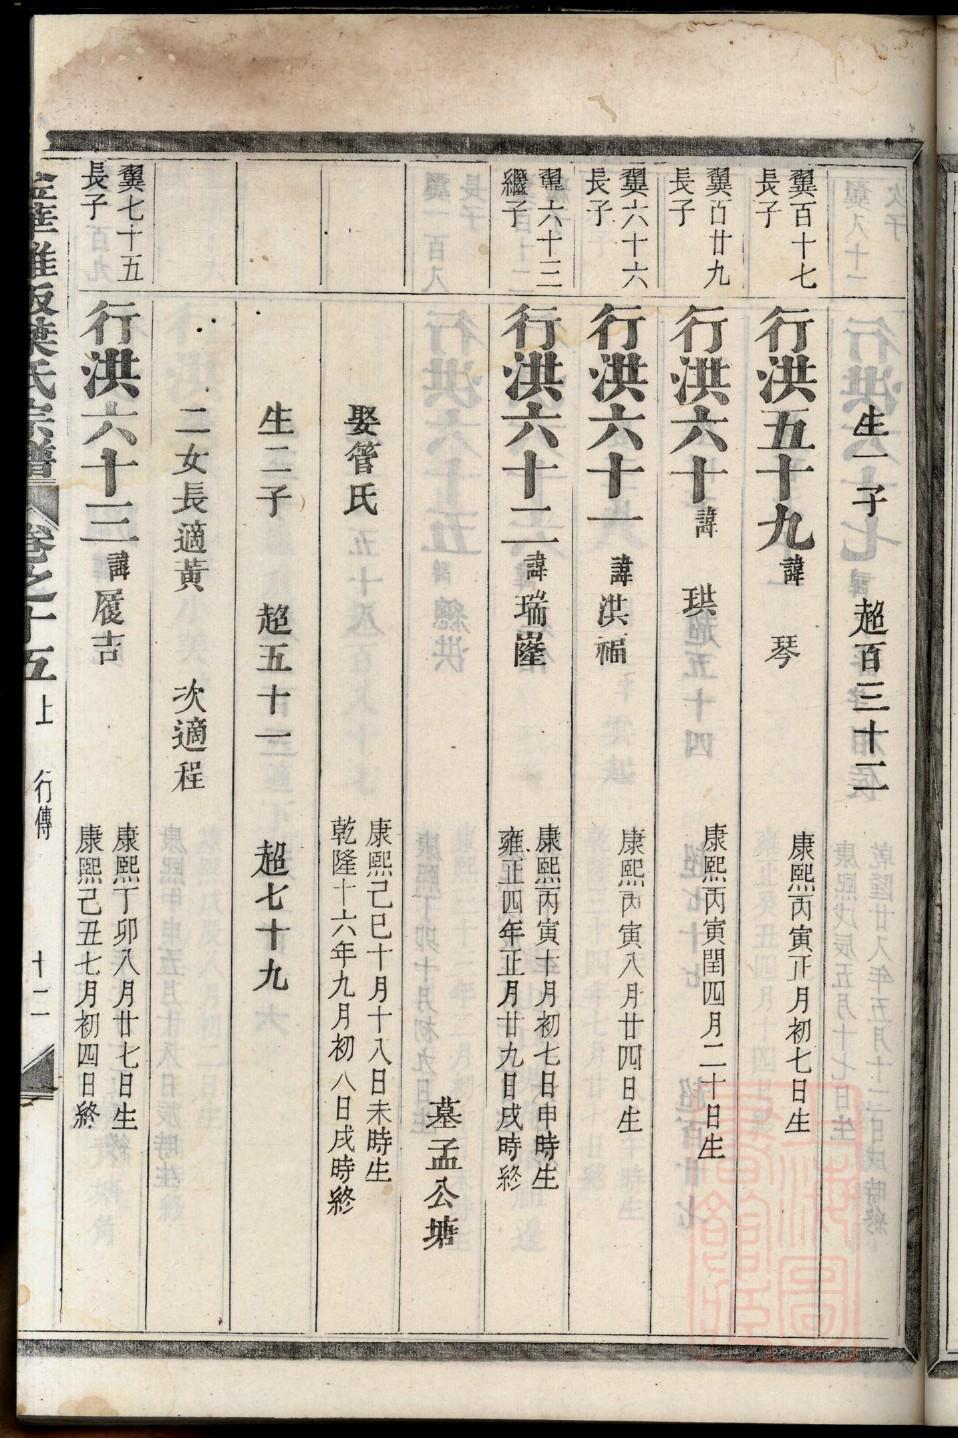 生一子 超百三十二
翼百十七
長子
行洪五十九諱 琴
康熙丙寅正月初七日生
翼百廿九
長子
行洪六十諱 珙
康熙丙寅閏四月二十日生
翼六十六
長子
行洪六十一諱洪福
康熙丙寅八月廿四日生
翼六十三
繼子
行洪六十二諱瑞隆
康熙丙寅十月初七日申時生
雍正四年正月廿九日戌時終
墓孟公塘
娶管氏
康熙己巳十月十八日未時生
乾隆十六年九月初八日戌時終
生二子 超五十一 超七十九
二女長適黃 次適程
翼七十五
長子
行洪六十三諱履吉
康熙丁卯八月廿七日生
康熙己丑七月初四日終
葉氏宗譜 卷之十五上 行傳 十二